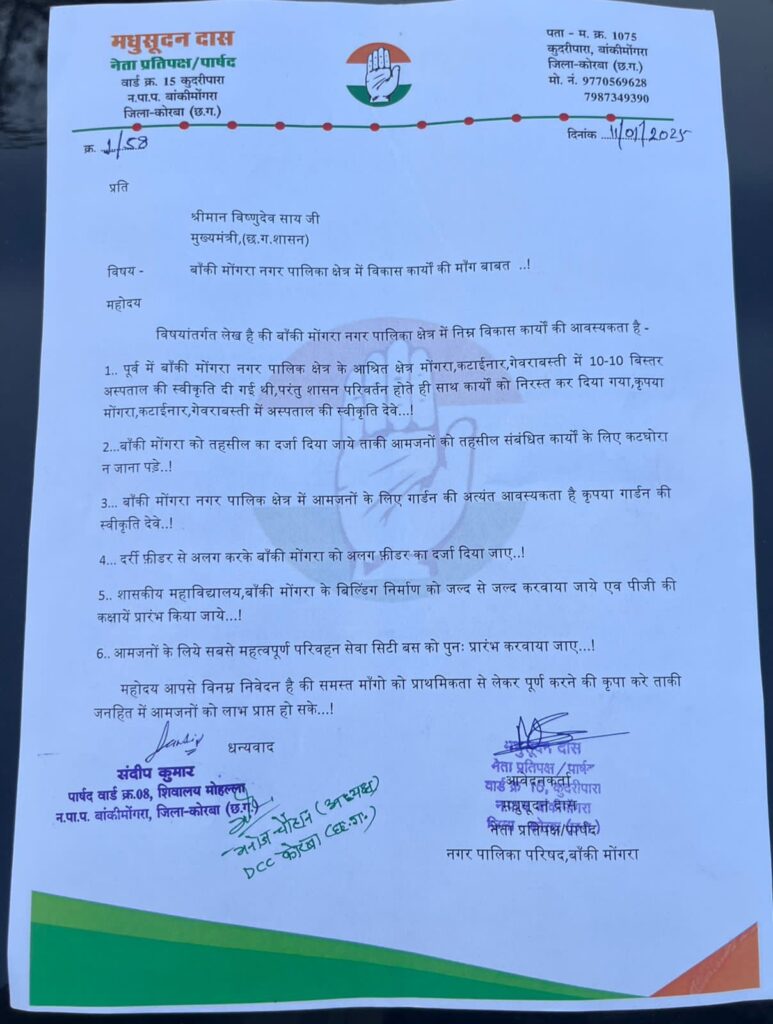 मधुसूदन दास
नेता प्रतिपक्ष/पार्षद
वार्ड क्र. 15 कुदरीपारा
न.पा.प. बांकीमोंगरा
जिला-कोरबा (छ.ग.)
पता - म. क्र. 1075
कुदरीपारा, बांकीमोंगरा
जिला-कोरबा (छ.ग.)
मो. नं. 9770569628
7987349390
क्र. 1/58
दिनांक 11/01/2025
प्रति
श्रीमान विष्णुदेव साय जी
मुख्यमंत्री,(छ.ग.शासन)
विषय - बाँकी मोंगरा नगर पालिका क्षेत्र में विकास कार्यो की माँग बाबत ..!
महोदय
विषयांतर्गत लेख है की बाँकी मोंगरा नगर पालिका क्षेत्र में निम्न विकास कार्यो की आवस्यकता है -
1.. पूर्व में बाँकी मोंगरा नगर पालिक क्षेत्र के आश्रित क्षेत्र मोंगरा,कटाईनार,गेवराबस्ती में 10-10 बिस्तर
अस्पताल की स्वीकृति दी गई थी,परंतु शासन परिवर्तन होते ही साथ कार्यों को निरस्त कर दिया गया,कृपया
मोंगरा,कटाईनार,गेवराबस्ती में अस्पताल की स्वीकृति देवे...!
2...बाँकी मोंगरा को तहसील का दर्जा दिया जाये ताकी आमजनों को तहसील संबंधित कार्यो के लिए कटघोरा
न जाना पड़े..!
3... बाँकी मोंगरा नगर पालिक क्षेत्र में आमजनों के लिए गार्डन की अत्यंत आवस्यकता है कृपया गार्डन की
स्वीकृति देवे..!
4... दर्री फ़ीडर से अलग करके बाँकी मोंगरा को अलग फ़ीडर का दर्जा दिया जाए..!
5.. शासकीय महाविद्यालय,बाँकी मोंगरा के बिल्डिंग निर्माण को जल्द से जल्द करवाया जाये एव पीजी की
कक्षायें प्रारंभ किया जाये...!
6.. आमजनों के लिये सबसे महत्वपूर्ण परिवहन सेवा सिटी बस को पुनः प्रारंभ करवाया जाए...!
महोदय आपसे विनम्र निवेदन है की समस्त माँगो को प्राथमिकता से लेकर पूर्ण करने की कृपा करे ताकी
जनहित में आमजनों को लाभ प्राप्त हो सके...!
धन्यवाद
संदीप कुमार
पार्षद वार्ड क्र.08, शिवालय मोहल्ला
न.पा.प. बांकीमोंगरा, जिला-कोरबा (छ.ग.)
मनोज चौहान (अध्यक्ष)
DCC कोरबा (छ.ग.)
मधुसूदन दास
नेता प्रतिपक्ष/पार्षद
कुदरीपारा
आवेदनकर्ता
मधुसूदन दास
नेता प्रतिपक्ष/पार्षद)
नगर पालिका परिषद,बाँकी मोंगरा